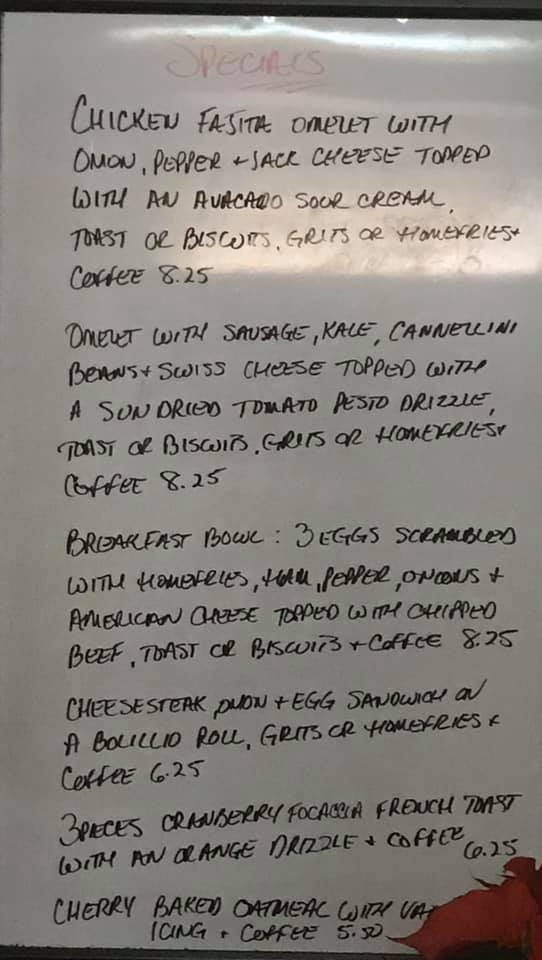 SPECIALS
CHICKEN FAJITA OMELET WITH
ONION, PEPPER + JACK CHEESE TOPPED
WITH AN AVACADO SOUR CREAM,
TOAST OR BISCUITS, GRITS OR HOMEFRIES +
COFFEE 8.25
OMELET WITH SAUSAGE, KALE, CANNELLINI
BEANS + SWISS CHEESE TOPPED WITH
A SUN DRIED TOMATO PESTO DRIZZLE,
TOAST OR BISCUITS, GRITS OR HOMEFRIES +
COFFEE 8.25
BREAKFAST BOWL: 3 EGGS SCRAMBLED
WITH HOMEFRIES, HAM, PEPPER, ONIONS +
AMERICAN CHEESE TOPPED WITH CHIPPED
BEEF, TOAST OR BISCUITS + COFFEE 8.25
CHEESESTEAK ONION + EGG SANDWICH ON
A BOLILLIO ROLL, GRITS OR HOMEFRIES +
COFFEE 6.25
3 PIECES CRANBERRY FOCACCIA FRENCH TOAST
WITH AN ORANGE DRIZZLE + COFFEE 6.25
CHERRY BAKED OATMEAL WITH
ICING + COFFEE 5.50